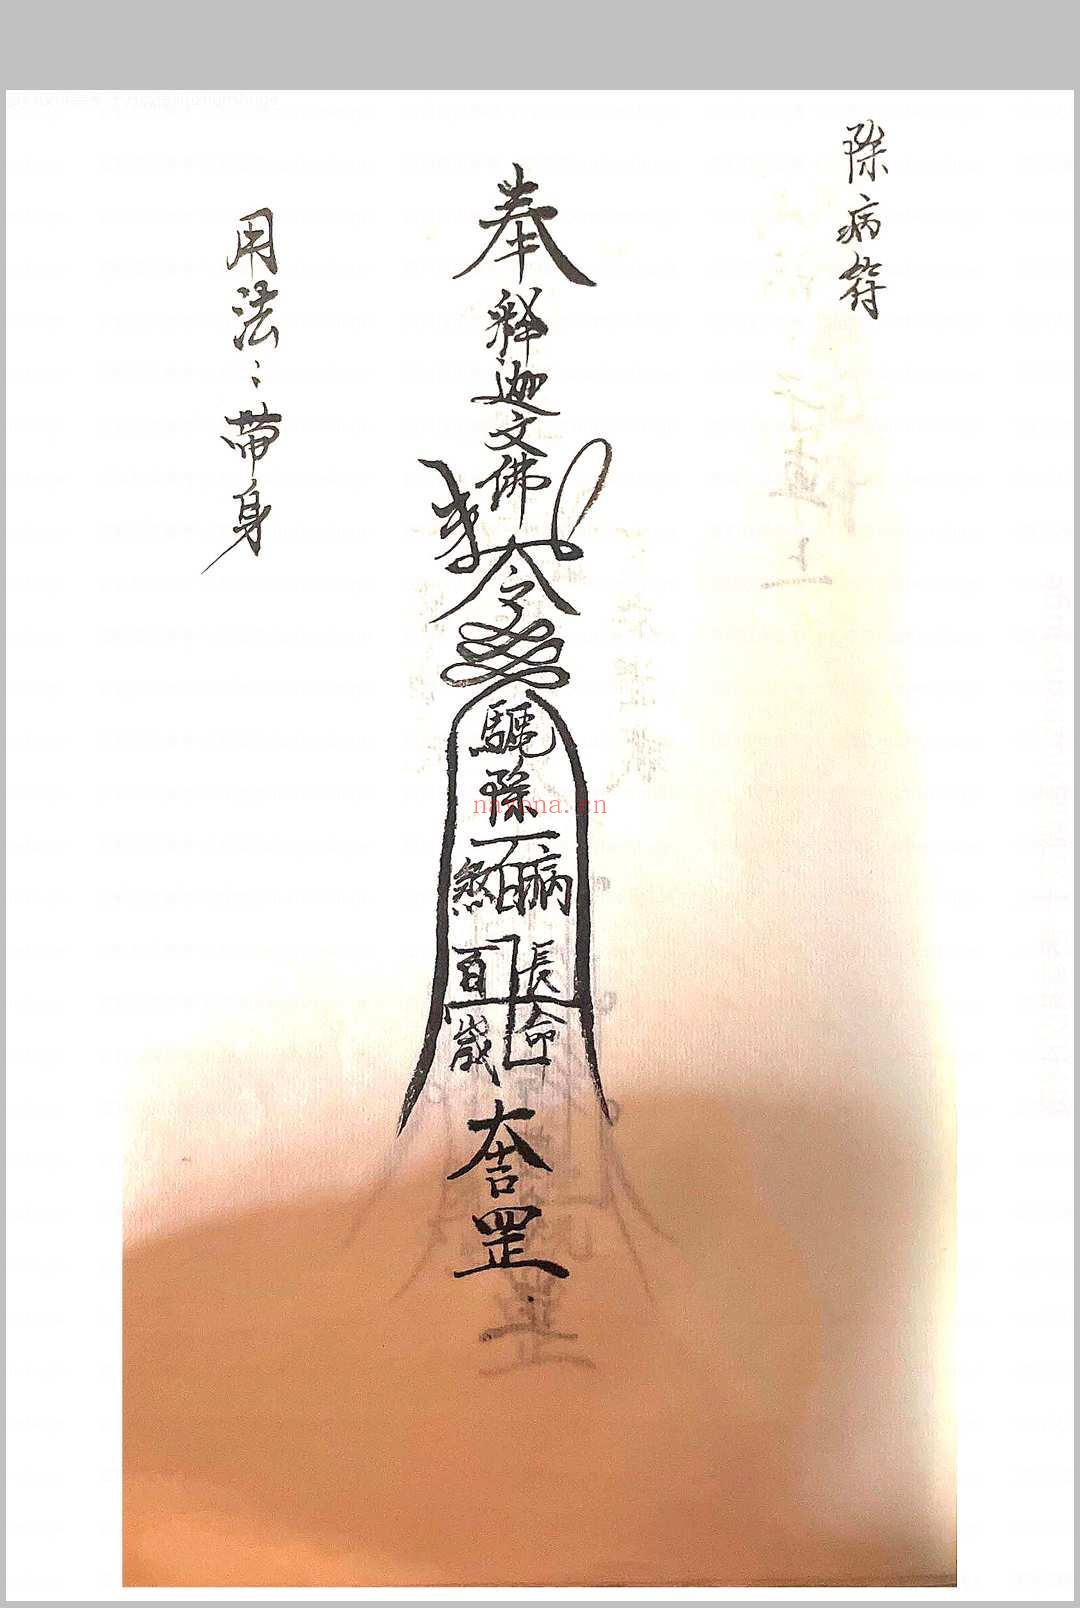 除病符
奉
釋迦文佛
令
驅除
一百病煞
長命
百歲
罡
用法：帶身
nayona.cn